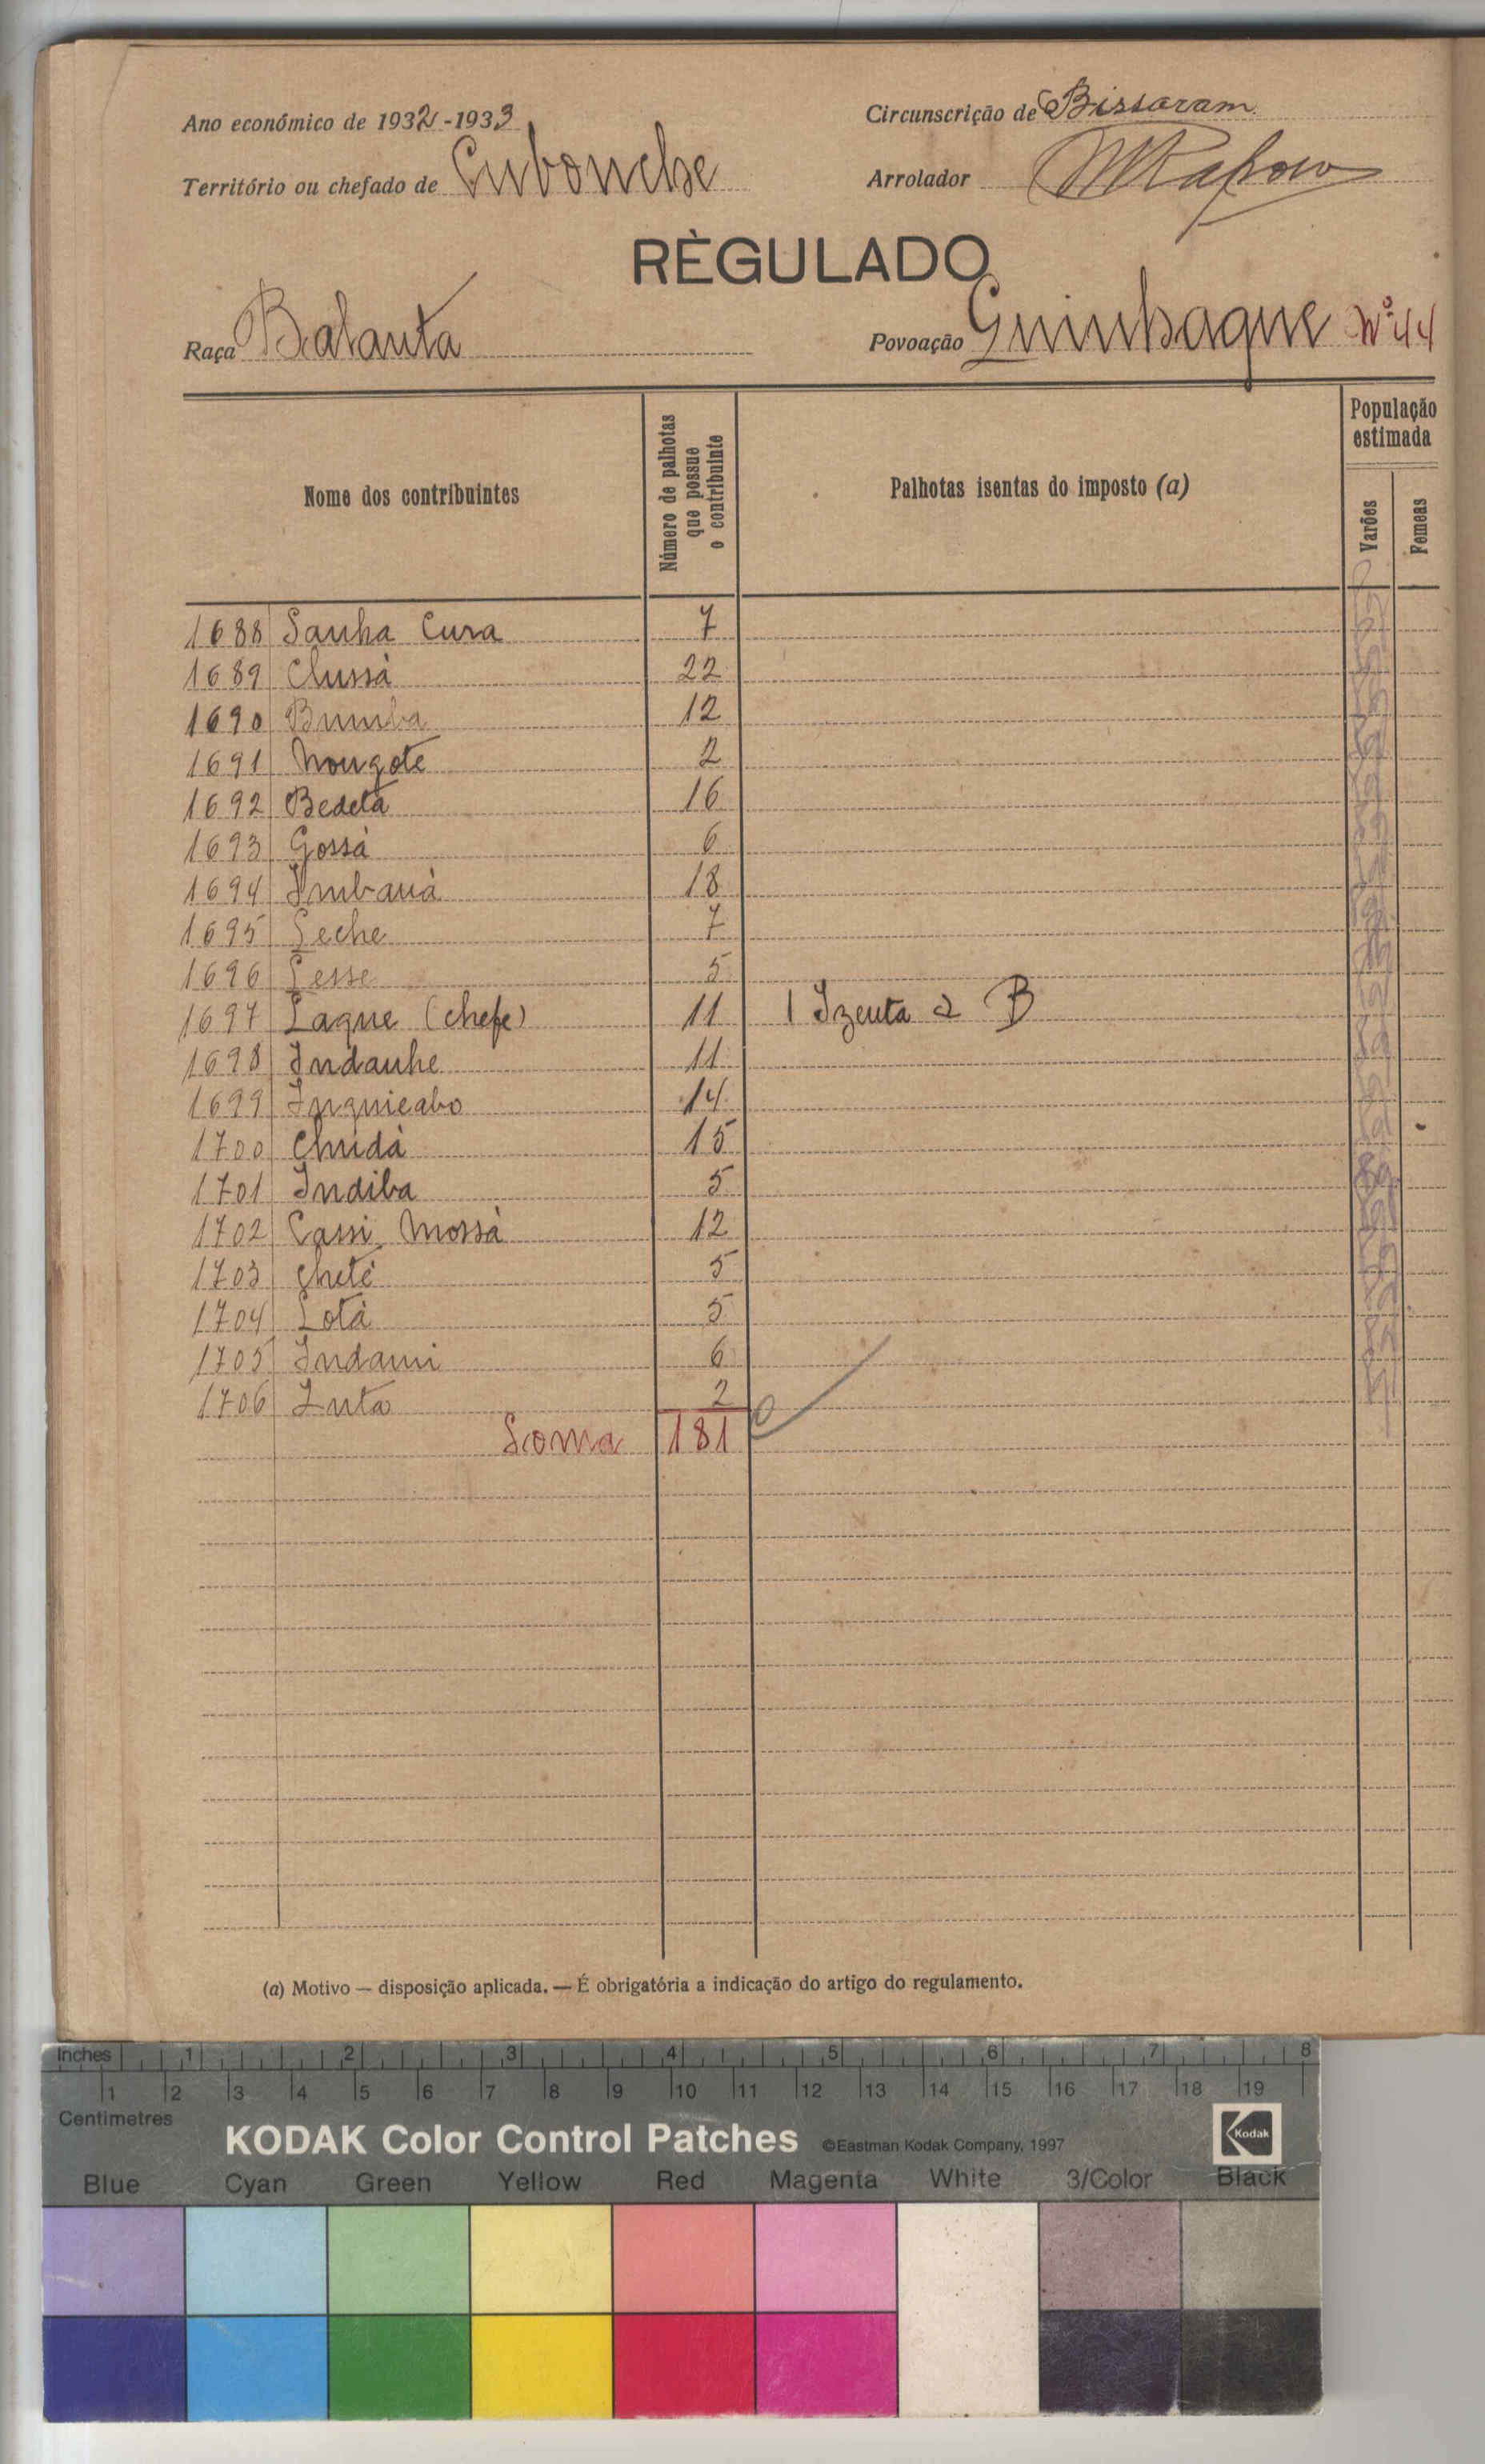 Ano económico de 1932-1933
Circunscrição de Bissoram
Território ou chefado de Cubonche
Arrolador
RÈGULADO
Raça Balanta
Povoação Guinhaque Nº 44
Nome dos contribuintes
Número de palhotas que possue o contribuinte
Palhotas isentas do imposto (a)
População estimada
Varões
Femeas
1688 Sanha Cura 7
1689 Clussà 22
1690 Bumba 12
1691 Nougote 2
1692 Bedeta 16
1693 Gossà 6
1694 Imbauà 18
1695 Leche 7
1696 Lesse 5
1697 Laque (chefe) 11 1 Izenta a B
1698 Indanhe 11
1699 Inquieabo 14
1700 Chidà 15
1701 Indiba 5
1702 Cassi Mossà 12
1703 Chetè 5
1704 Lotà 5
1705 Indami 6
1706 Inta 2
Soma 181
(a) Motivo — disposição aplicada. — É obrigatória a indicação do artigo do regulamento.
Inches 1 2 3 4 5 6 7 8
1 2 3 4 5 6 7 8 9 10 11 12 13 14 15 16 17 18 19
Centimetres
KODAK Color Control Patches ©Eastman Kodak Company, 1997 Kodak
Blue Cyan Green Yellow Red Magenta White 3/Color Black